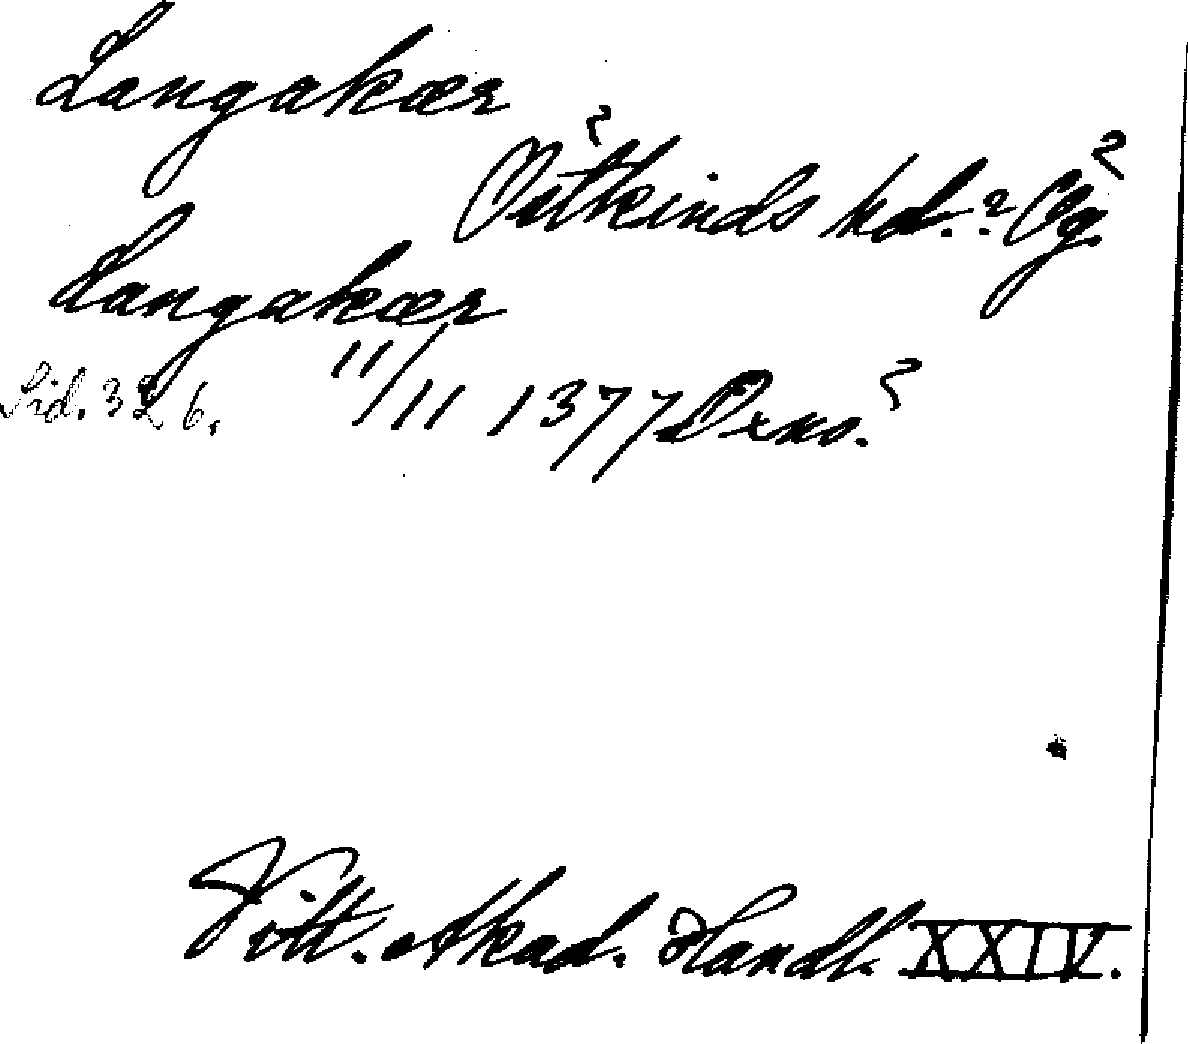 Langakær
? ?
Östkinds hd.? Ög.
Langakær
Sid. 326. 11/11 1377 Oxno. ?
Vitt. Akad. Handl. XXIV.